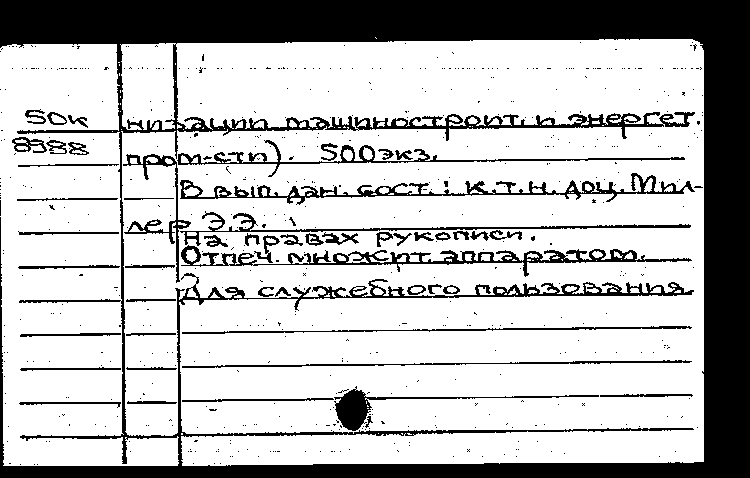 50к низации машиностроит. и энергет.
8988 пром-сти). 500экз.
В вып. дан. сост.: к.т.н. доц. Мил-
лер Э.Э.
На правах рукописи.
Отпеч. множит. аппаратом.
Для служебного пользования.